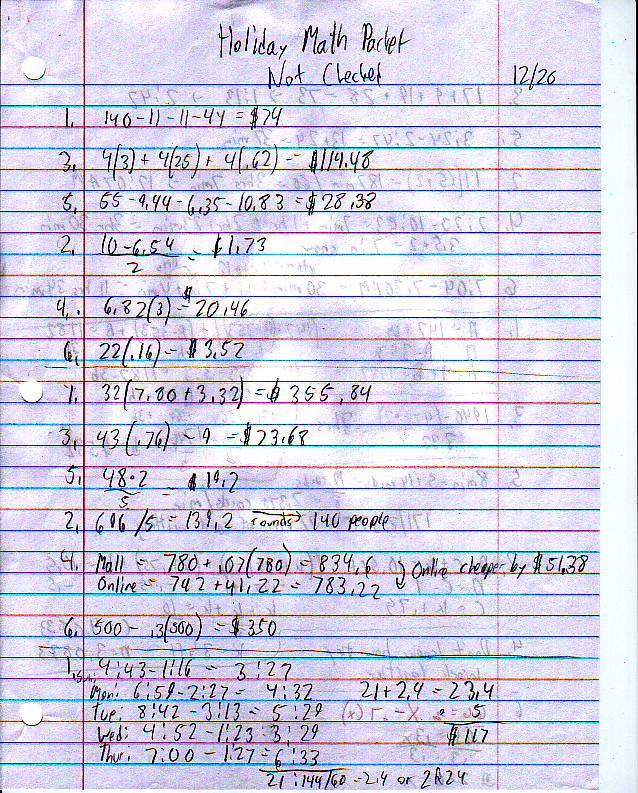 Holiday Math Packet
Not Checked 12/26
1. 140-11-11-44 = $74
3. 4(3) + 4(25) + 4(.62) = $114.48
5. 55-9.44-6.35-10.83 = $28.38
2. 10-6.54 = $1.73
2
4. 6.82(3) = $20.46
6. 22(.16) = $3.52
1. 32(7.80 + 3.32) = $355.84
3. 43(.76) - 9 = $23.68
5. 48·2 = $19.2
5
2. 696/5 = 139.2 rounds 140 people
4. Mall = 780 + .07(780) = 834.6 Online cheaper by $51.38
Online = 742 + 41.22 = 783.22
6. 500 - .3(500) = $350
1. Sun: 4:43-1:16 = 3:27
Mon: 6:59-2:27 = 4:32 21+2.4 = 23.4
Tue: 8:42-3:13 = 5:29 · 5
Wed: 4:52-1:23 = 3:29 $117
Thur: 7:00-1:27 = 6:33
21:144/60 = 2.4 or 2R24